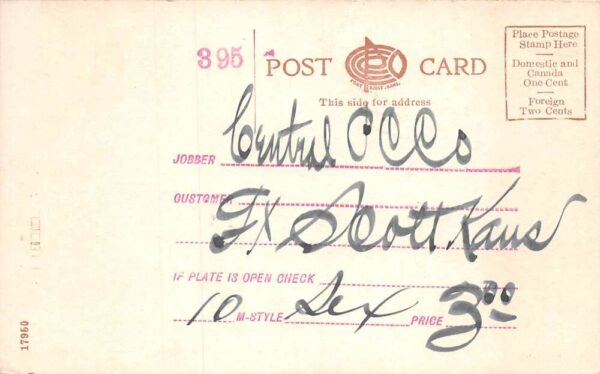 395
POST CARD
This side for address
Place Postage
Stamp Here
Domestic and
Canada
One Cent
Foreign
Two Cents
JOBBER Central CCCo
CUSTOMER
Ft Scott Kans
IF PLATE IS OPEN CHECK
10 M-STYLE Sex PRICE 3.00
17950